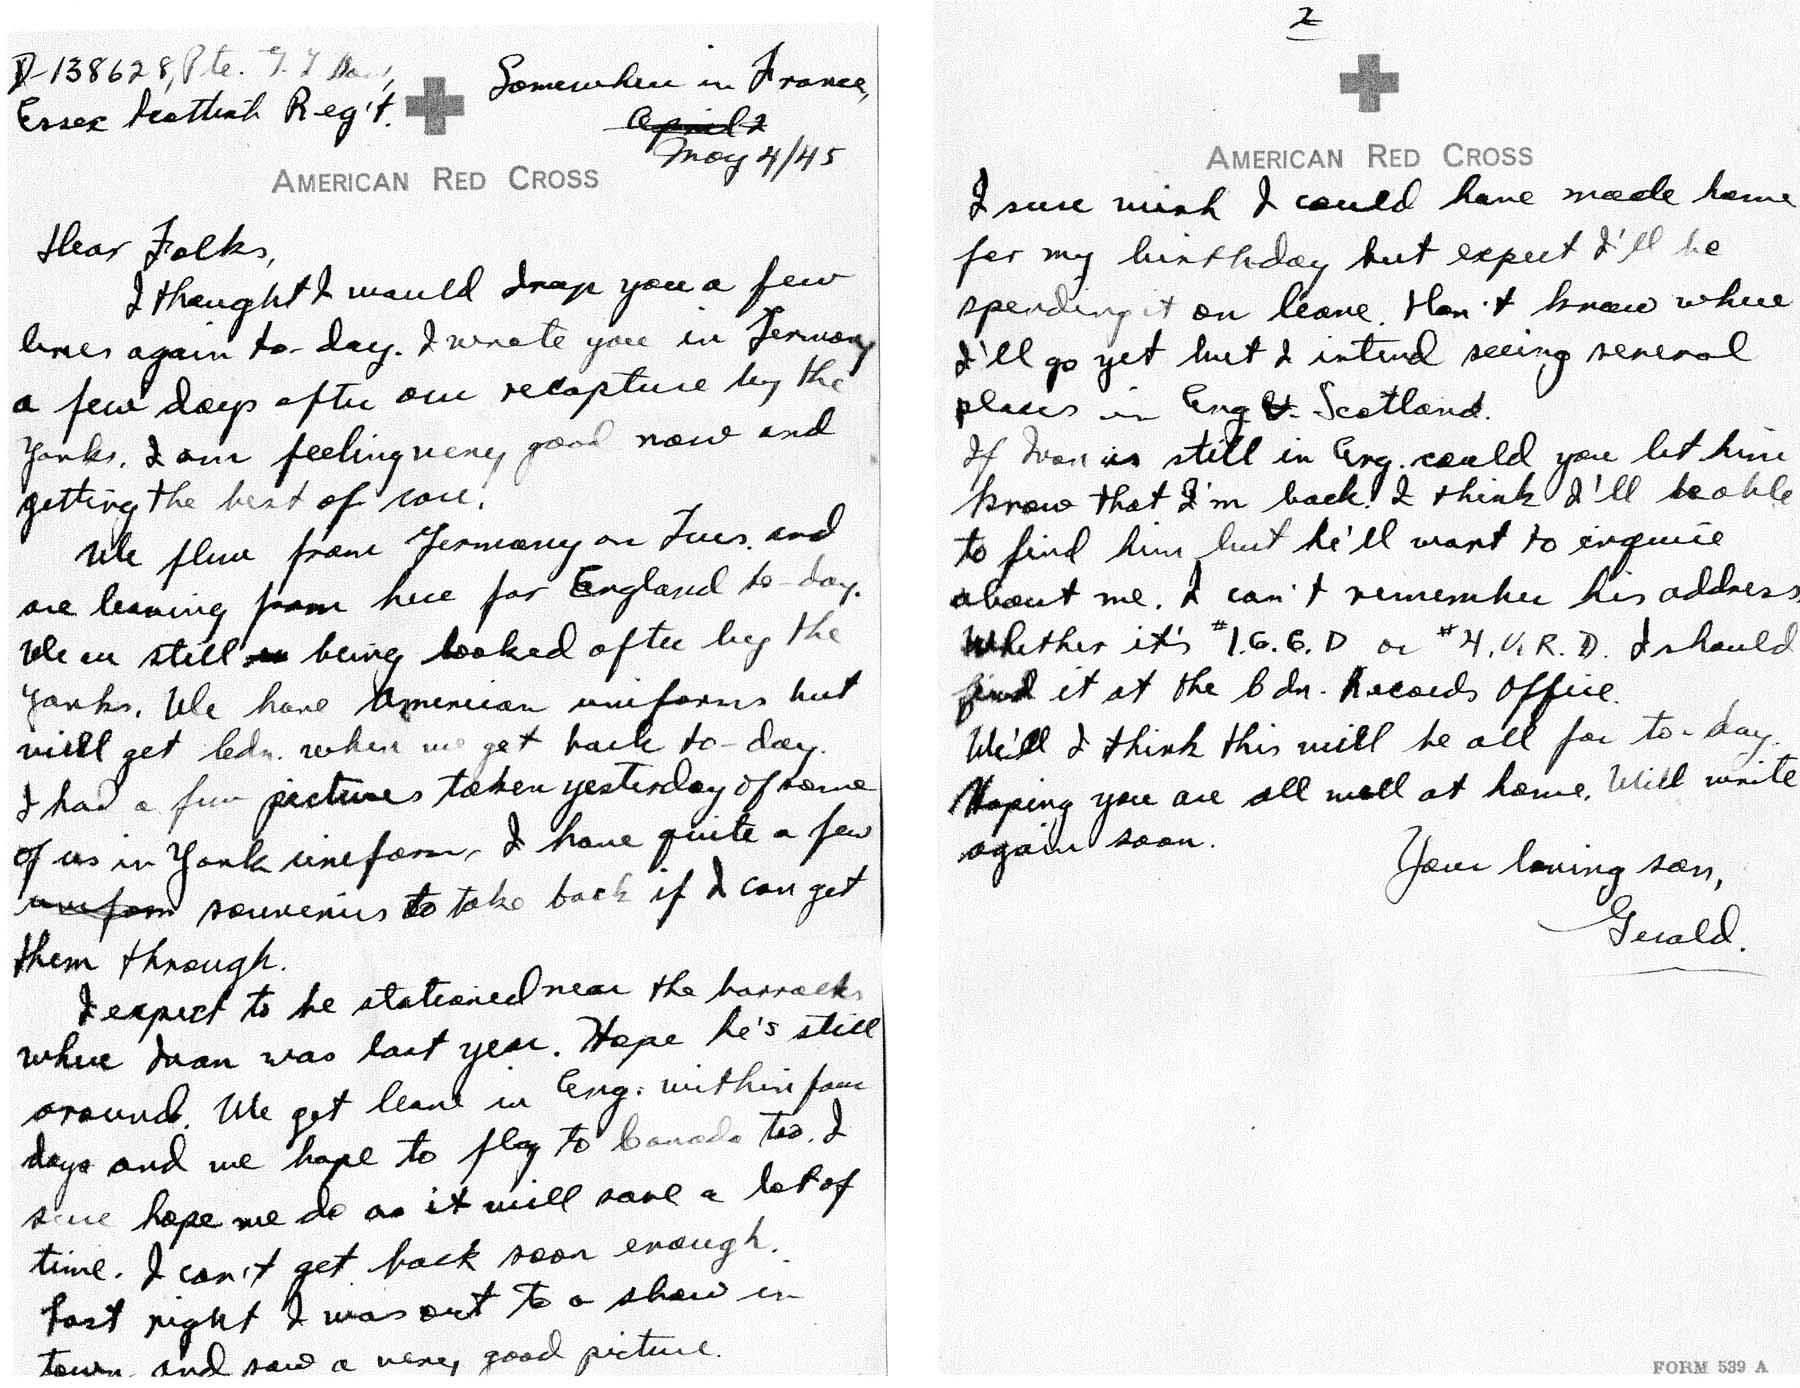 D-138628, Pte. G. I
Essex Scottish Reg't.
Somewhere in France,
April 2
May 4/45
AMERICAN RED CROSS
Dear Folks,
I thought I would drop you a few
lines again to-day. I wrote you in Germany
a few days after our recapture by the
Yanks. I am feeling very good now and
getting the best of care.
We flew from Germany on Tues. and
are leaving from here for England to-day.
We are still being looked after by the
Yanks. We have American uniforms but
will get Cdn. when we get back to-day.
I had a few pictures taken yesterday of some
of us in Yank uniform. I have quite a few
uniform souvenirs to take back if I can get
them through.
I expect to be stationed near the barracks
where Ivan was last year. Hope he's still
around. We get leave in Eng. within four
days and we hope to fly to Canada too. I
sure hope we do as it will save a lot of
time. I can't get back soon enough.
Last night I was out to a show in
town and saw a very good picture.
2
AMERICAN RED CROSS
I sure wish I could have made home
for my birthday but expect I'll be
spending it on leave. Don't know where
I'll go yet but I intend seeing several
places in Eng & Scotland.
If Ivan is still in Eng. could you let him
know that I'm back. I think I'll be able
to find him but he'll want to enquire
about me. I can't remember his address
Whether it's #1. G. G. D or #4. V. R. D. I should
find it at the Cdn. Records Office.
We'll I think this will be all for to-day.
Hoping you are all well at home. Will write
again soon.
Your loving son,
Gerald.
FORM 539 A